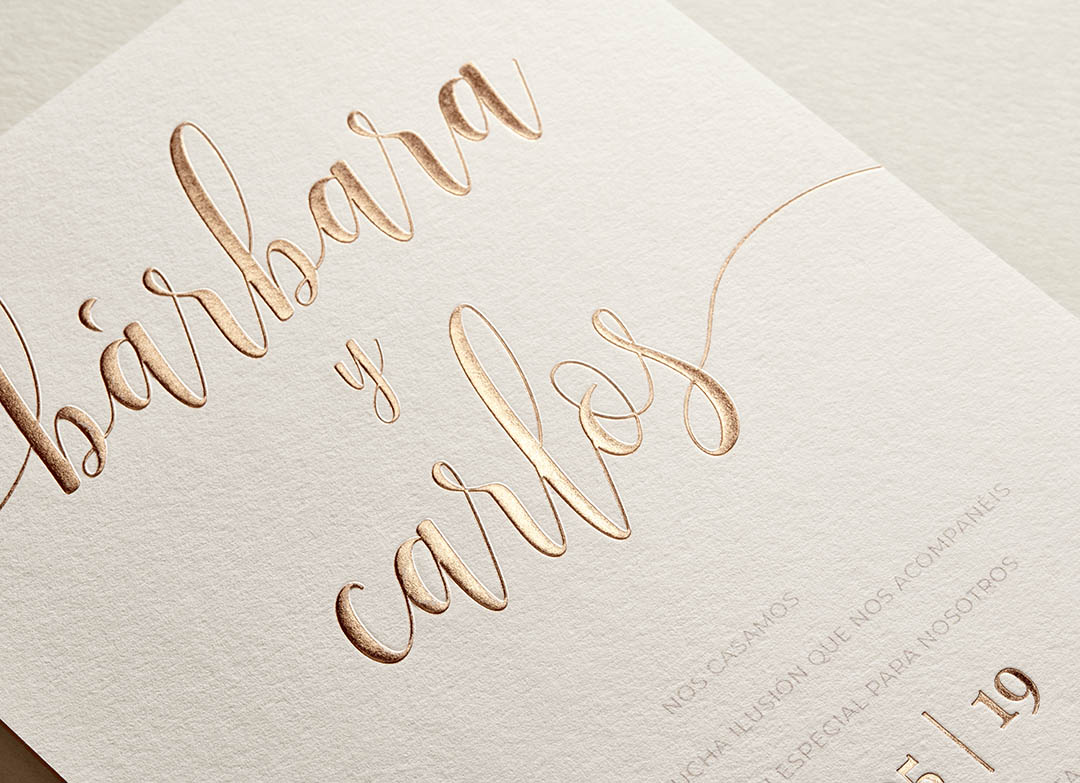 bárbara
y
carlos
NOS CASAMOS
UCHA ILUSIÓN QUE NOS ACOMPANÉIS
ESPECIAL PARA NOSOTROS
5 | 19